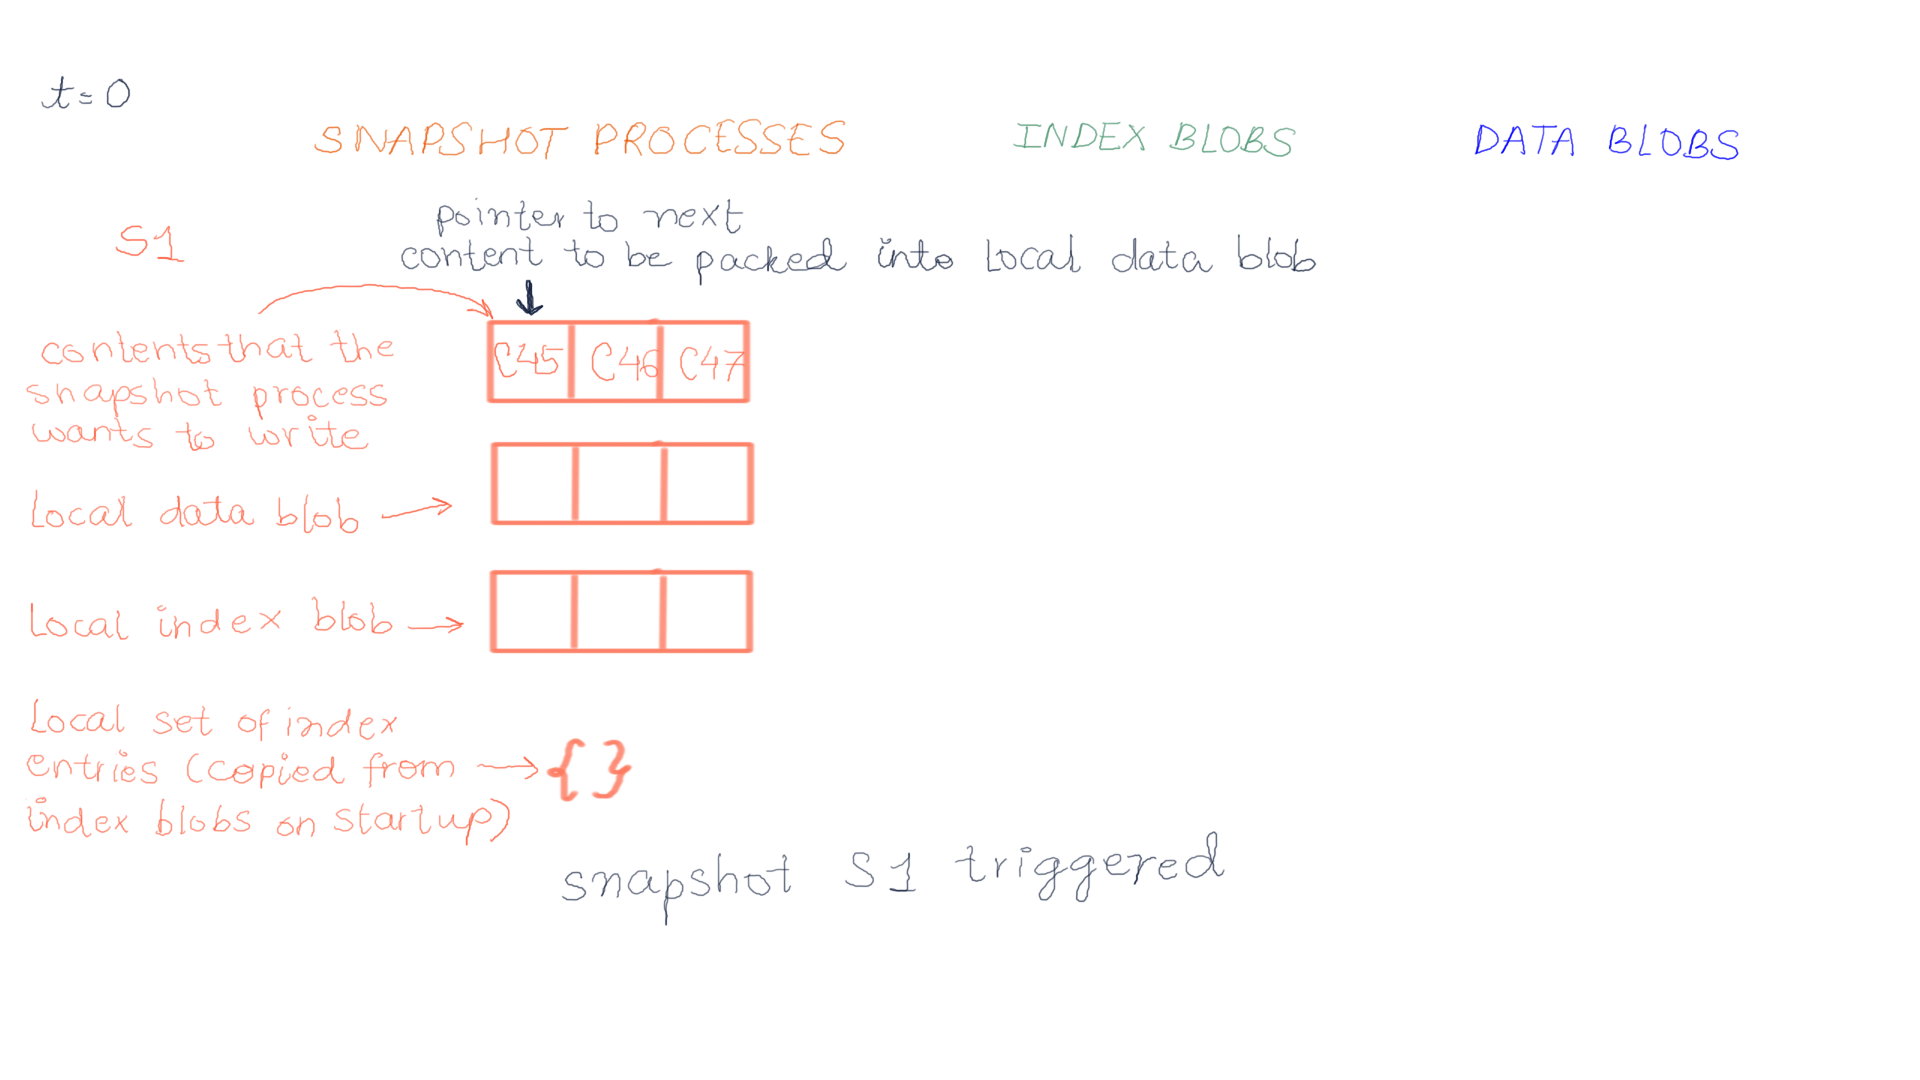 t=0
SNAPSHOT PROCESSES
INDEX BLOBS
DATA BLOBS
S1
pointer to next
content to be packed into Local data blob
contents that the
snapshot process
wants to write
C45 C46 C47
Local data blob
Local index blob
Local set of index
entries (copied from
index blobs on startup)
{ }
snapshot S1 triggered